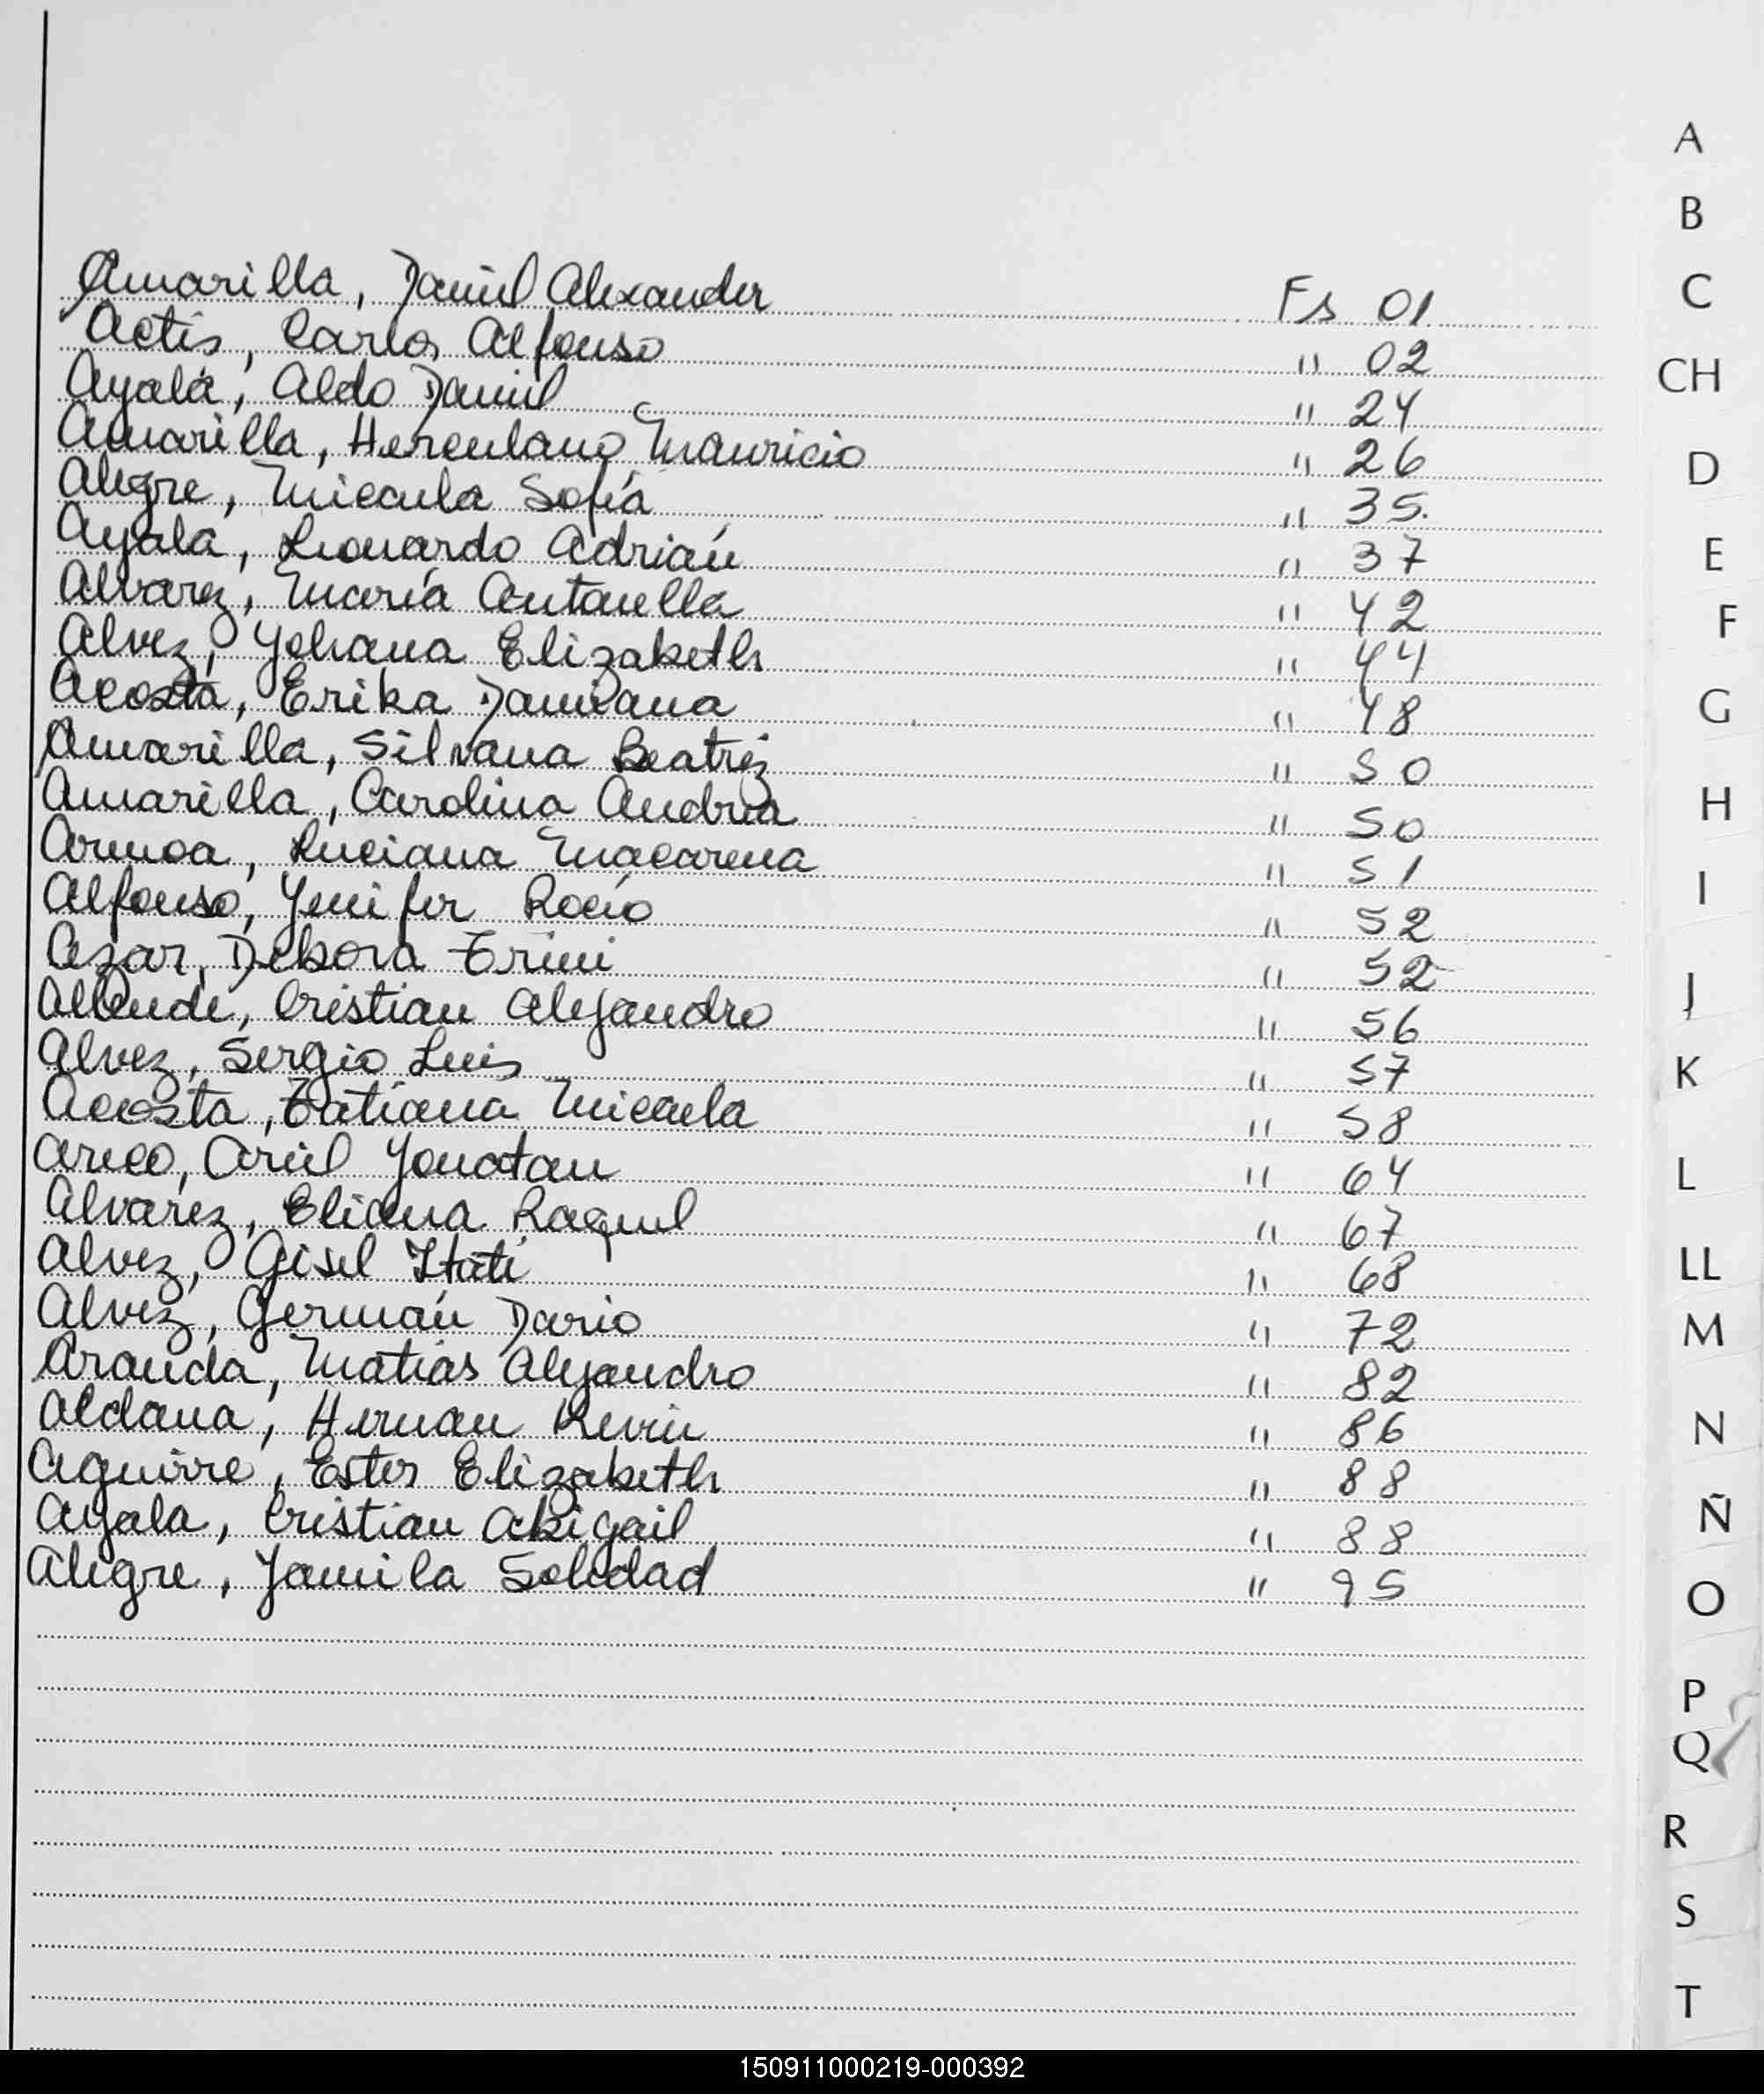 Amarilla, Daniel Alexander Fs 01
Actis, Carlos Alfonso " 02
Ayala, Aldo Daniel " 24
Amarilla, Herculano Mauricio " 26
Alegre, Micaela Sofía " 35.
Ayala, Leonardo Adrián " 37
Alvarez, María Antonella " 42
Alvez, Yohana Elizabeth " 44
Acosta, Erika Damiana " 48
Amarilla, Silvana Beatriz " 50
Amarilla, Carolina Andrea " 50
Armoa, Luciana Macarena " 51
Alfonso, Yenifer Rocío " 52
Azar, Debora Erini " 52
Allende, Cristian Alejandro " 56
Alvez, Sergio Luis " 57
Acosta, Tatiana Micaela " 58
Arico, Ariel Yonatan " 64
Alvarez, Eliana Raquel " 67
Alvez, Gisel Itatí " 68
Alvez, Germán Dario " 72
Aranda, Matías Alejandro " 82
Aldana, Hernan Kevin " 86
Aguirre, Ester Elizabeth " 88
Ayala, Cristian Abigail " 88
Alegre, Yamila Soledad " 95
A
B
C
CH
D
E
F
G
H
I
J
K
L
LL
M
N
Ñ
O
P
Q
R
S
T
150911000219-000392